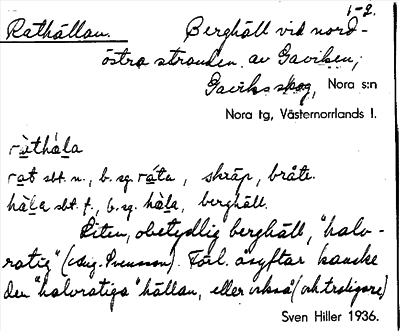 1-2.
Rathällan. Berghäll vid nord-
östra stranden av Gaviken,
Gaviks skog, Nora s:n
Nora tg, Västernorrlands l.
ràthä̀la
rat sbt. n., b. sg. ráta, skräp, bråte.
hä̀la sbt. f., b. sg. hä̀la, berghäll.
Liten, obetydlig berghäll, "halv-
ratig" (Svensson). Förl. åsyftar kanske
den "halvratiga" hällan, eller också (o. troligare)
Sven Hiller 1936.